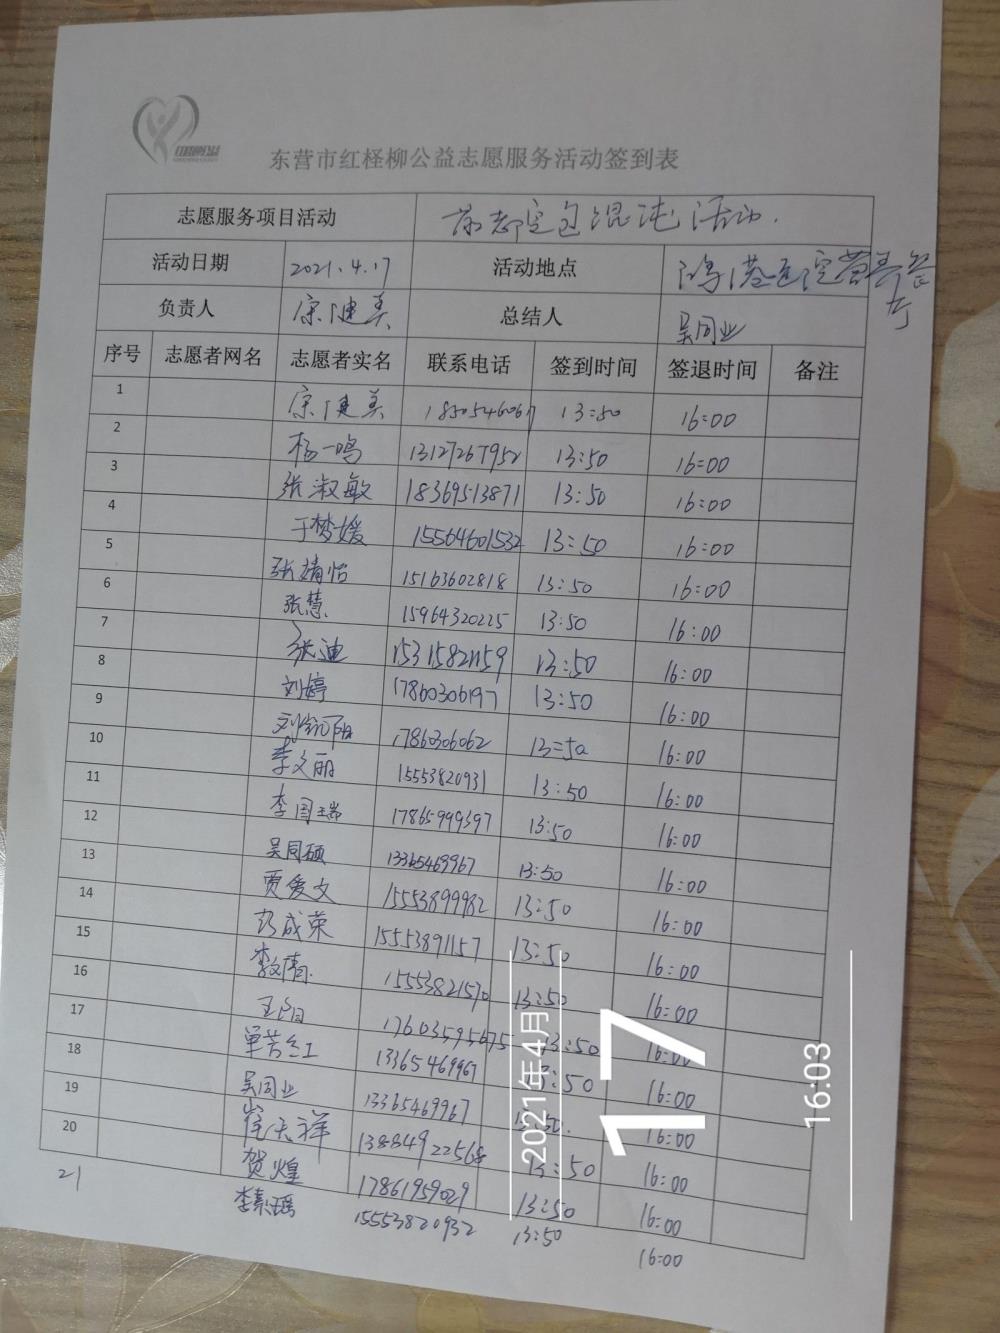 东营市红柽柳公益志愿服务活动签到表
志愿服务项目活动 包混沌活动.
活动日期 2021.4.17 活动地点 鸿港医院营养餐厅
负责人 宗健美 总结人 吴同业
序号 志愿者网名 志愿者实名 联系电话 签到时间 签退时间 备注
1 宗健美 13:50 16:00
2 杨一鸣 13127267952 13:50 16:00
3 张淑敏 18369513871 13:50 16:00
4 于梦媛 15564601532 13:50 16:00
5 张婧怡 15163602818 13:50 16:00
6 张慧 15964320225 13:50 16:00
7 张迪 15315821159 13:50 16:00
8 刘婷 17860306197 13:50 16:00
9 17860306062 13:50 16:00
10 李文丽 15553820931 13:50 16:00
11 李国瑞 17865999397 13:50 16:00
12 吴同硕 13365469967 13:50 16:00
13 贾爱文 15553899982 13:50 16:00
14 彭成荣 15553891157 13:50 16:00
15 15553821570 13:50 16:00
16 17603595675 13:50 16:00
17 单芳红 13365469967 13:50 16:00
18 吴同业 13365469967 13:50 16:00
19 崔天祥 13:50 16:00
20 贺煌 17861959029 13:50 16:00
21 李素瑶 15553820932 13:50 16:00
2021年4月
17
16:03